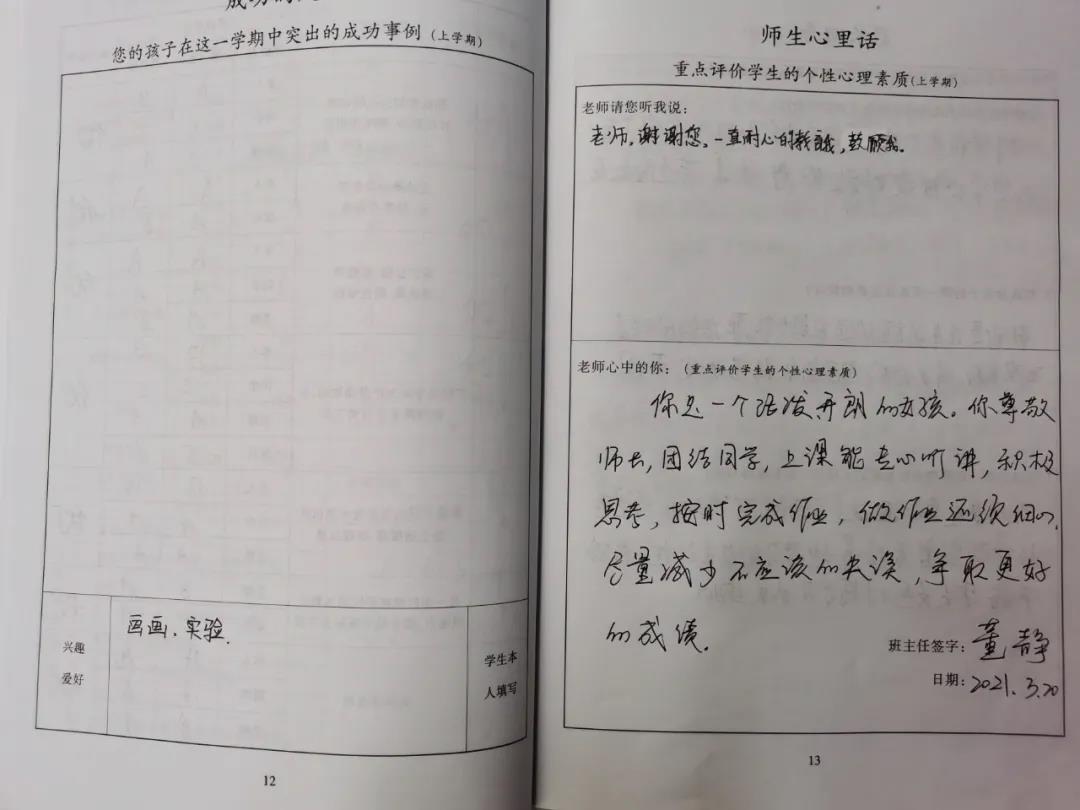 成功的
您的孩子在这一学期中突出的成功事例（上学期）
兴趣
爱好
画画、实验.
学生本
人填写
12
师生心里话
重点评价学生的个性心理素质(上学期)
老师请您听我说：
老师,谢谢您,一直耐心的教
老师心中的你：（重点评价学生的个性心理素质）
你是一个活泼开朗的女孩。你尊敬
师长,团结同学,上课能专心听讲,积极
思考,按时完成作业,做作业还须细心,
尽量减少不应该的失误,争取更好
的成绩.
班主任签字：董静
日期：2021.3.20
13